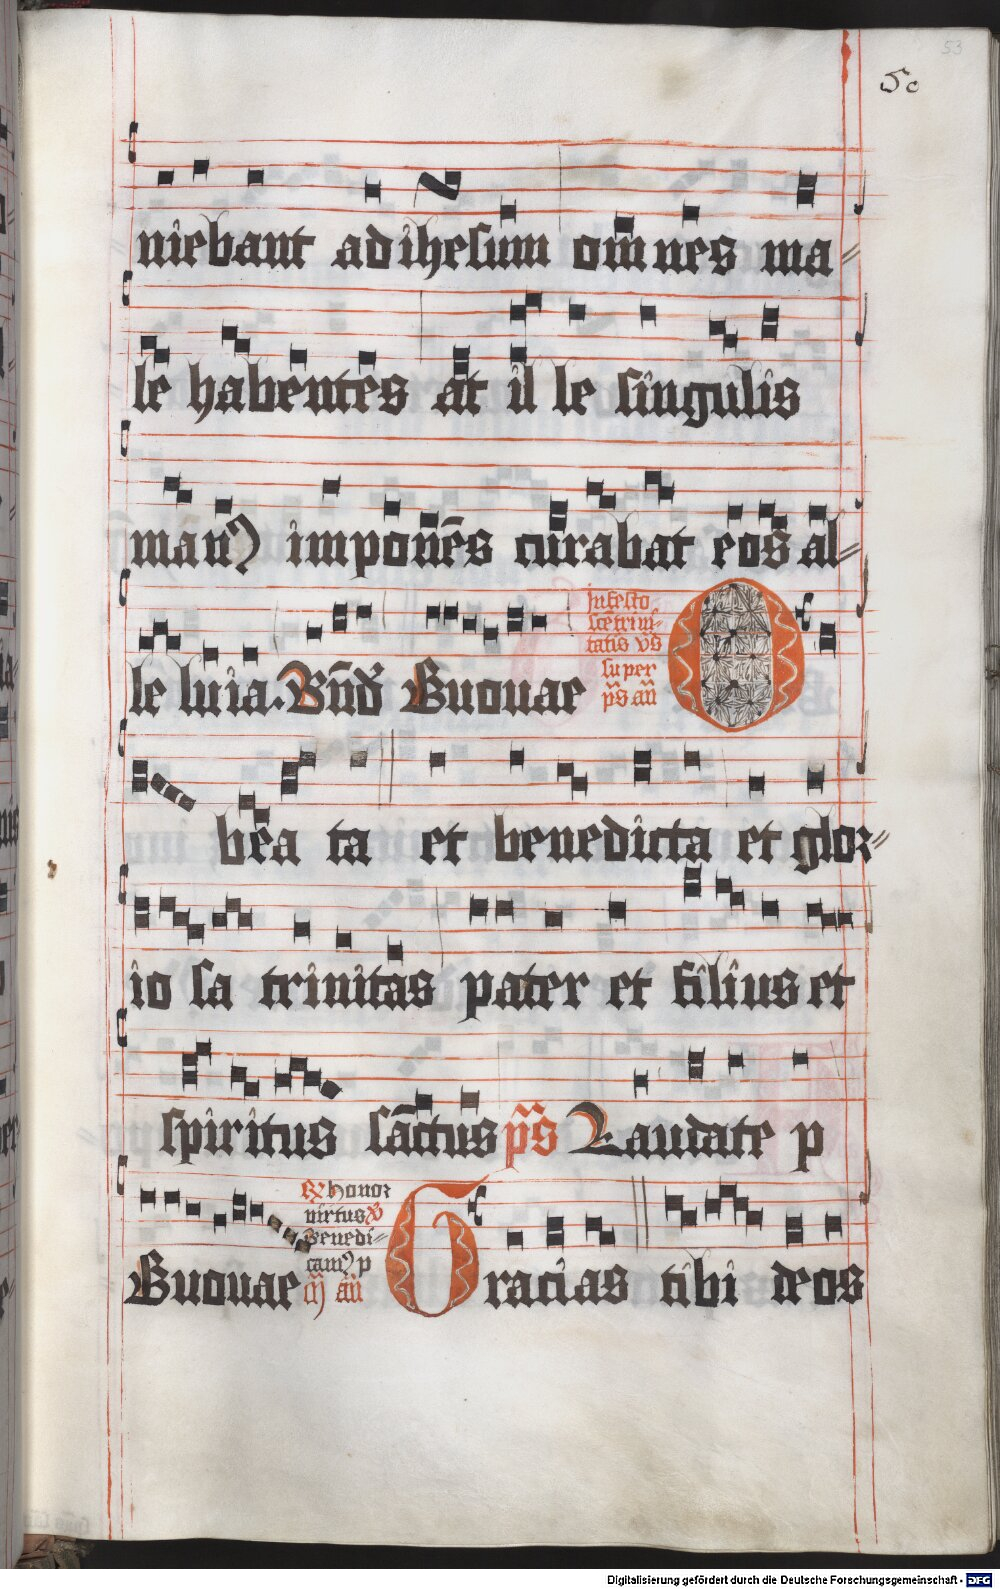 53
50
niebant ad ihesum om̄nes ma
le habentes at il le singulis
manꝰ imponēs curabat eos al
le luia. Bn̄d Euouae
In festo
scē trini
tatis vs̄
super
ps̄ an̄
O
bea ta et benedicta et glor
io sa trinitas pater et filius et
spiritus sāctus ps̄ Laudate p
R̄ honor
virtus v̄
Benedi
camꝰ p
m̄ an̄
Euouae Gracias tibi deos
Digitalisierung gefördert durch die Deutsche Forschungsgemeinschaft - DFG